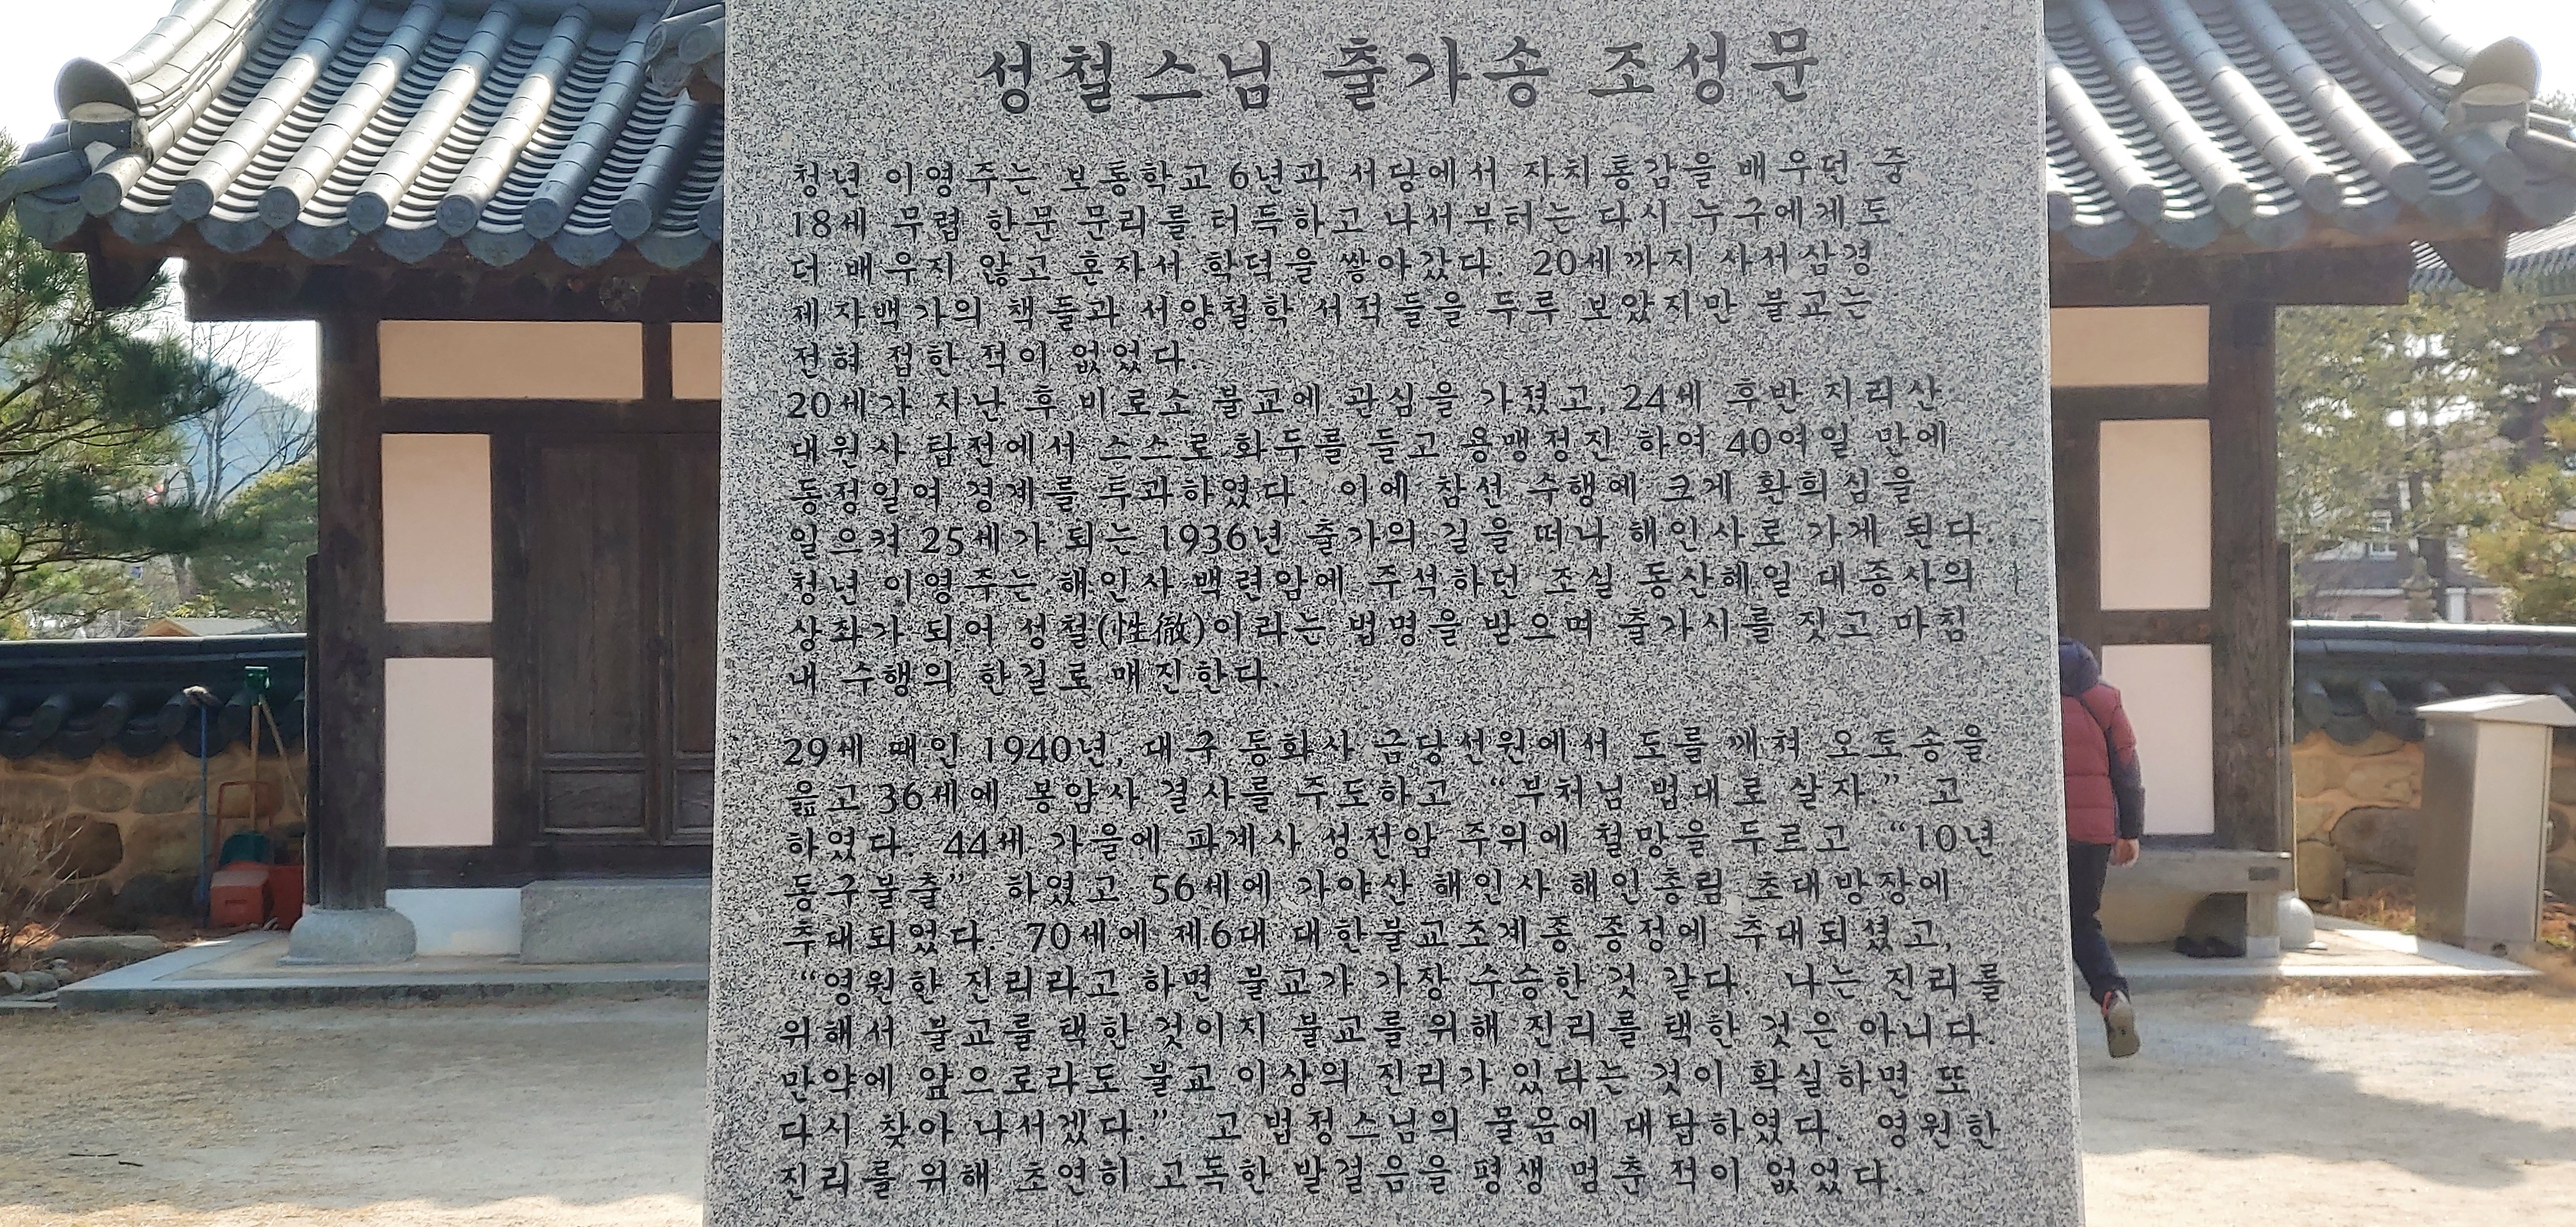 성철스님 출가송 조성문
청년 이영주는 보통학교 6년과 서당에서 자치통감을 배우던 중
18세 무렵 한문 문리를 터득하고 나서부터는 다시 누구에게도
더 배우지 않고 혼자서 학덕을 쌓아갔다. 20세까지 사서삼경
제자백가의 책들과 서양철학 서적들을 두루 보았지만 불교는
전혀 접한 적이 없었다.
20세가 지난 후 비로소 불교에 관심을 가졌고, 24세 후반 지리산
대원사 탑전에서 스스로 화두를 들고 용맹정진 하여 40여일 만에
동정일여 경계를 투과하였다. 이에 참선 수행에 크게 환희심을
일으켜 25세가 되는 1936년 출가의 길을 떠나 해인사로 가게 된다.
청년 이영주는 해인사 백련암에 주석하던 조실 동산혜일 대종사의
상좌가 되어 성철(性徹)이라는 법명을 받으며 출가시를 짓고 마침
내 수행의 한길로 매진한다.
29세 때인 1940년, 대구 동화사 금당선원에서 도를 깨쳐 오도송을
읊고 36세에 봉암사 결사를 주도하고 “부처님 법대로 살자.” 고
하였다. 44세 가을에 파계사 성전암 주위에 철망을 두르고 “10년
동구불출” 하였고 56세에 가야산 해인사 해인총림 초대방장에
추대되었다. 70세에 제6대 대한불교조계종 종정에 추대되셨고,
“영원한 진리라고 하면 불교가 가장 수승한 것 같다. 나는 진리를
위해서 불교를 택한 것이지 불교를 위해 진리를 택한 것은 아니다.
만약에 앞으로라도 불교 이상의 진리가 있다는 것이 확실하면 또
다시 찾아 나서겠다.” 고 법정스님의 물음에 대답하였다. 영원한
진리를 위해 초연히 고독한 발걸음을 평생 멈춘 적이 없었다.